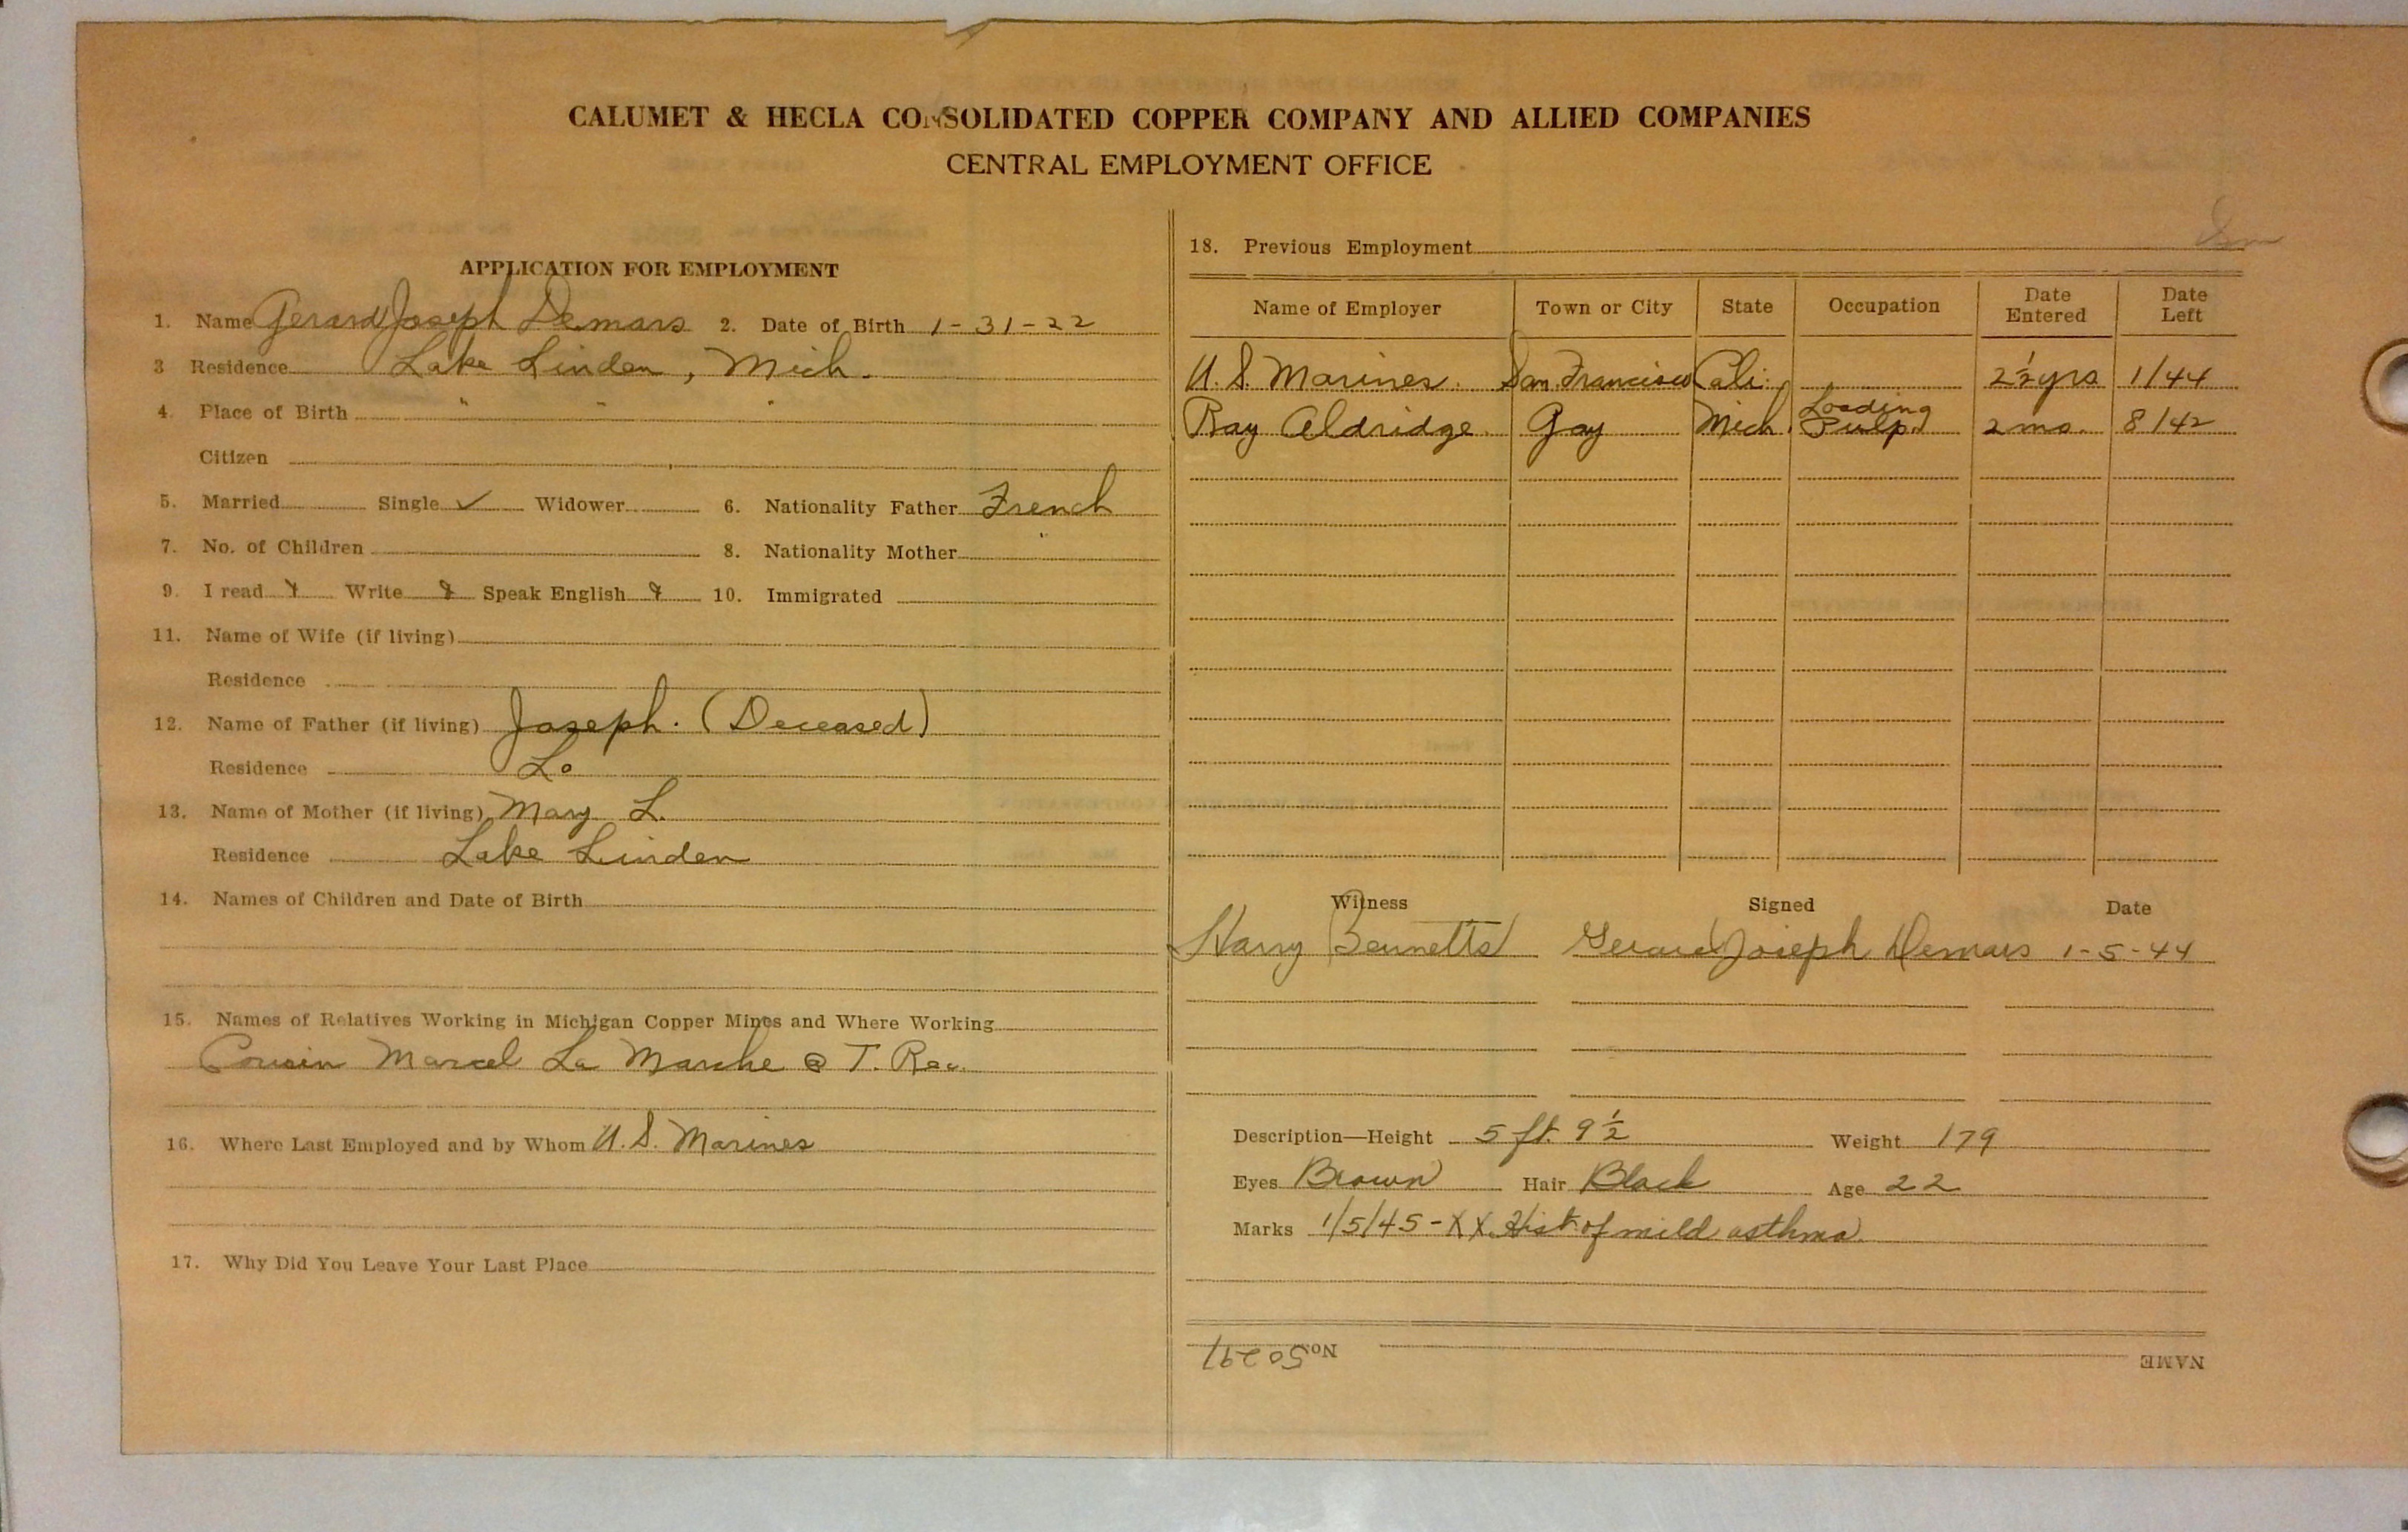 CALUMET & HECLA CONSOLIDATED COPPER COMPANY AND ALLIED COMPANIES
CENTRAL EMPLOYMENT OFFICE
APPLICATION FOR EMPLOYMENT
1. Name Gerard Joseph Demars 2. Date of Birth 1-31-22
3 Residence Lake Linden, Mich.
4. Place of Birth " " "
Citizen
5. Married Single ✓ Widower 6. Nationality Father French
7. No. of Children 8. Nationality Mother "
9. I read y Write y Speak English y 10. Immigrated
11. Name of Wife (if living)
Residence
12. Name of Father (if living) Joseph. (Deceased)
Residence
13. Name of Mother (if living) Mary L.
Residence Lake Linden
14. Names of Children and Date of Birth
15. Names of Relatives Working in Michigan Copper Mines and Where Working
Cousin Marcel La Marche @ T. Rec.
16. Where Last Employed and by Whom U.S. Marines
17. Why Did You Leave Your Last Place
18. Previous Employment
Name of Employer Town or City State Occupation Date Entered Date Left
U.S. Marines. San. Francisco Cali. 2½ yrs 1/44
Ray Aldridge Gay Mich. Loading Pulp 2 mo. 8/42
Witness Signed Date
Harry Bennetts Gerard Joseph Demars 1-5-44
Description—Height 5 ft. 9½ Weight 179
Eyes Brown Hair Black Age 22
Marks 1/5/45-XX. Hist. of mild asthma.
NAME No. 50297